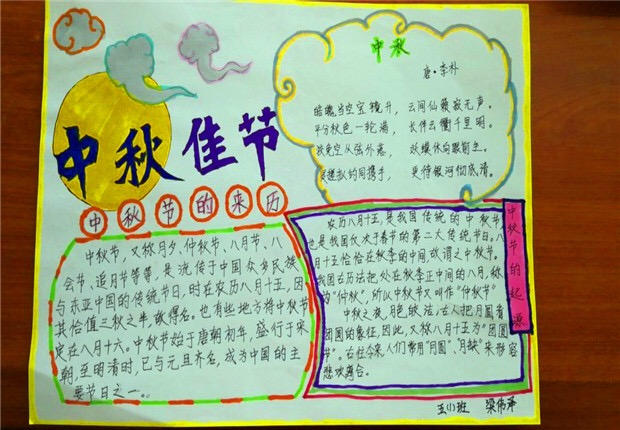 中秋佳节
中秋
唐·李朴
皓魄当空宝镜升，云间仙籁寂无声。
平分秋色一轮满，长伴云衢千里明。
狡兔空从弦外落，妖蟆休向眼前生。
灵槎拟约同携手，更待银河彻底清。
中秋节的来历
中秋节，又称月夕、仲秋节、八月节、八
会节、追月节等等，是流传于中国众多民族
与东亚中国的传统节日，时在农历八月十五，因
其恰值三秋之半，故得名。也有些地方将中秋节
定在八月十六。中秋节始于唐朝初年，盛行于宋
朝，至明清时，已与元旦齐名，成为中国的主
要节日之一。
中秋节的起源
农历八月十五，是我国传统的中秋节，
也是我国仅次于春节的第二大传统节日。八
月十五恰恰在秋季的中间，故谓之中秋节。
我国古历法把处在秋季正中间的八月，称
为“仲秋”，所以中秋节又叫作“仲秋节”
中秋之夜，月色皎洁，古人把月圆看
团圆的象征，因此，又称八月十五为“团圆
节”。古往今来，人们常用“月圆”、“月缺”来形容
悲欢离合。
五(1)班 梁伟泽